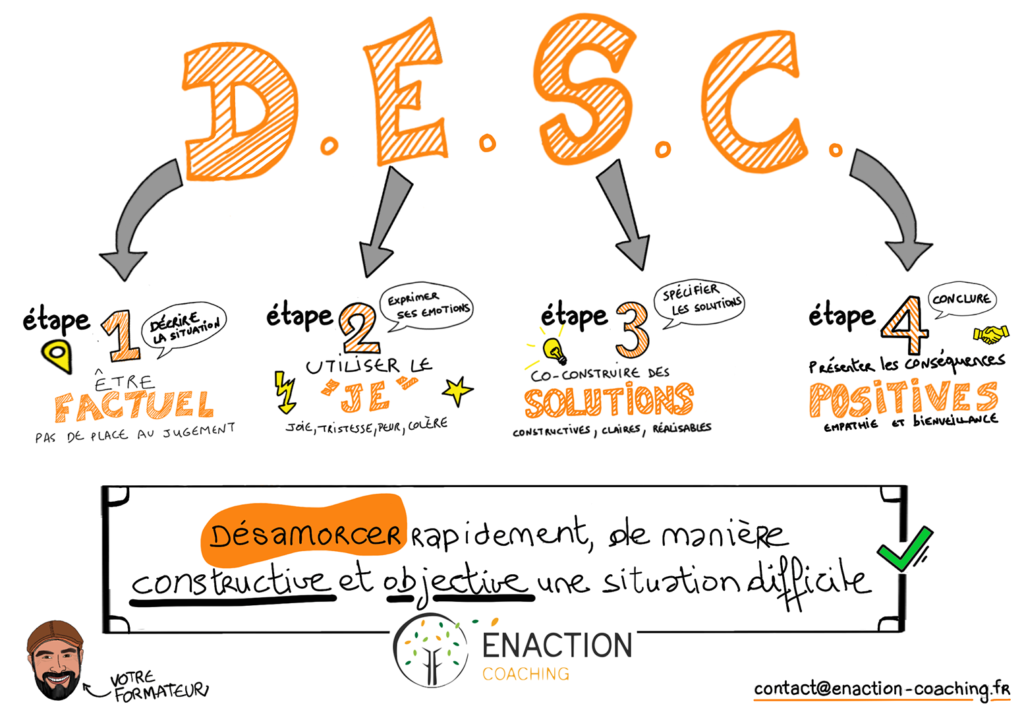 D.E.S.C.
étape 1
DÉCRIRE
LA SITUATION
ÊTRE
FACTUEL
PAS DE PLACE AU JUGEMENT
étape 2
EXPRIMER
SES EMOTIONS
UTILISER LE
"JE"
JOIE, TRISTESSE, PEUR, COLÈRE
étape 3
SPÉCIFIER
LES SOLUTIONS
CO-CONSTRUIRE DES
SOLUTIONS
CONSTRUCTIVES, CLAIRES, RÉALISABLES
étape 4
CONCLURE
Présenter les conséquences
POSITIVES
EMPATHIE ET BIENVEILLANCE
DÉSAMORCER rapidement, de manière
constructive et objective une situation difficile
ENACTION
COACHING
VOTRE
FORMATEUR
contact@enaction-coaching.fr